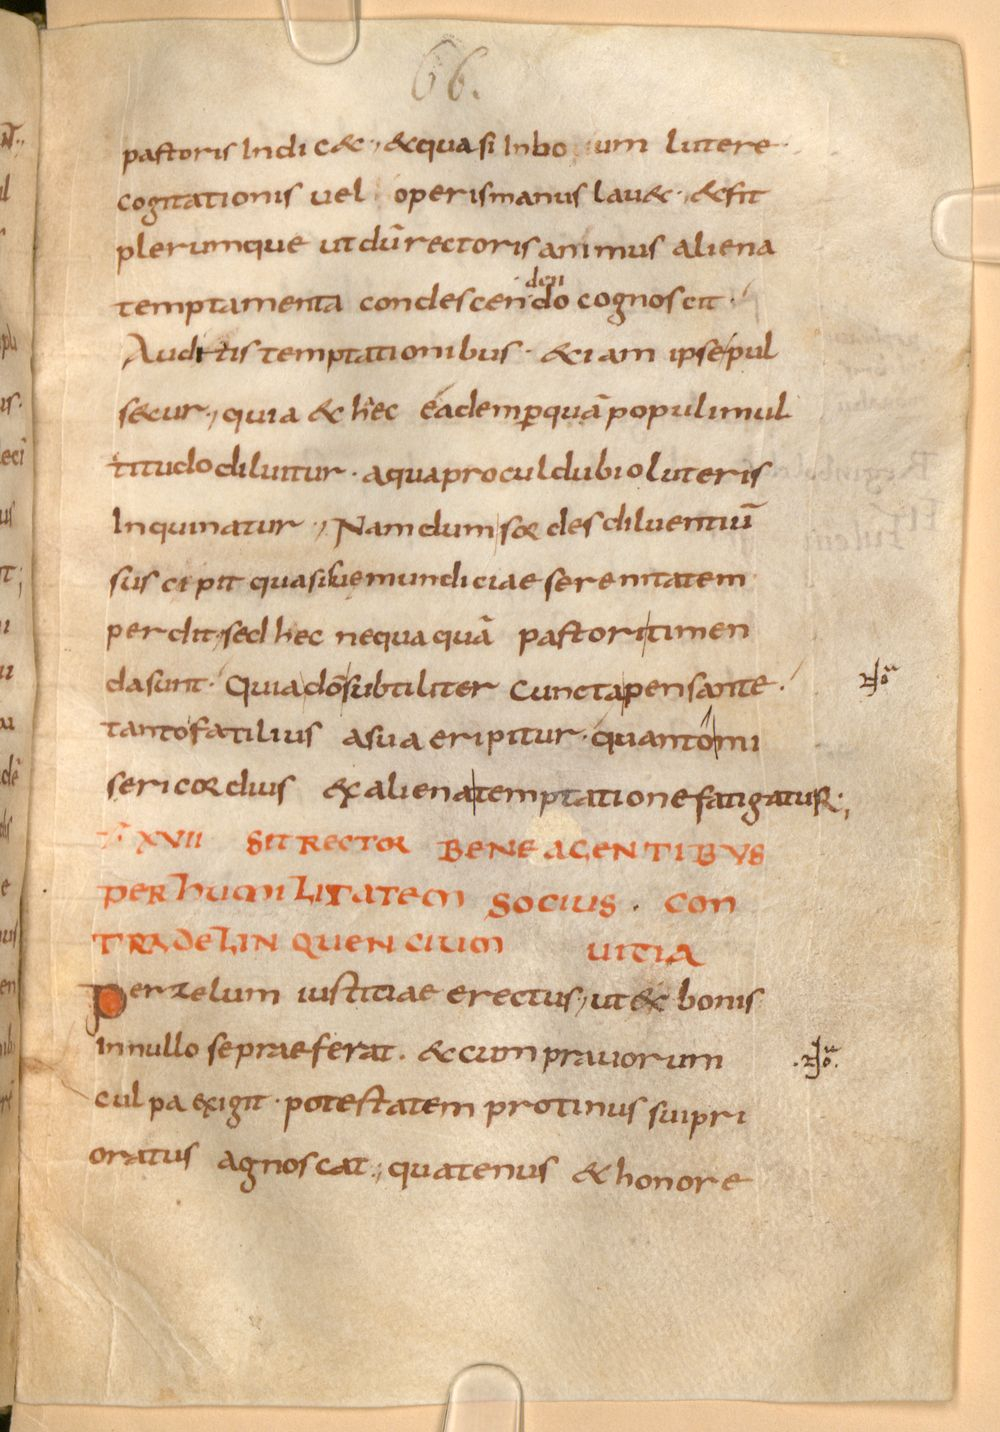 66.
pastoris Indic&, &quasi Inbo um lutere
cogitationis uel operismanus lau& · &fit
plerumque ut dū rectoris animus aliena
temptamenta condescendo cognoscit ·
den
Auditis temptationibus · &iam ipse pul
s&ur, quia & hec eadem ꝑquā populi mul
titudo diluitur · aqua procul dubio luteris
Inquinatur, Nam dum sordes diluentiū
suscipit quasi suae mundiciae serenitatem
perdit, sed hec nequaquā pastori timen
da sunt · Quia dō subtiliter cuncta pensante ·
tanto fatilius a sua eripitur · quanto mi
sericordius ex aliena temptatione fatigatur;
XVII SIT RECTOR BENE AGENTIBUS
PER HUMILITATEM SOCIUS · CON
TRA DELINQUENCIUM UITIA
Per zelum iustitiae erectus, ut & bonis
In nullo se praeferat · & cum prauorum
culpa exigit · potestatem protinus sui pri
oratus agnoscat, quatenus & honore